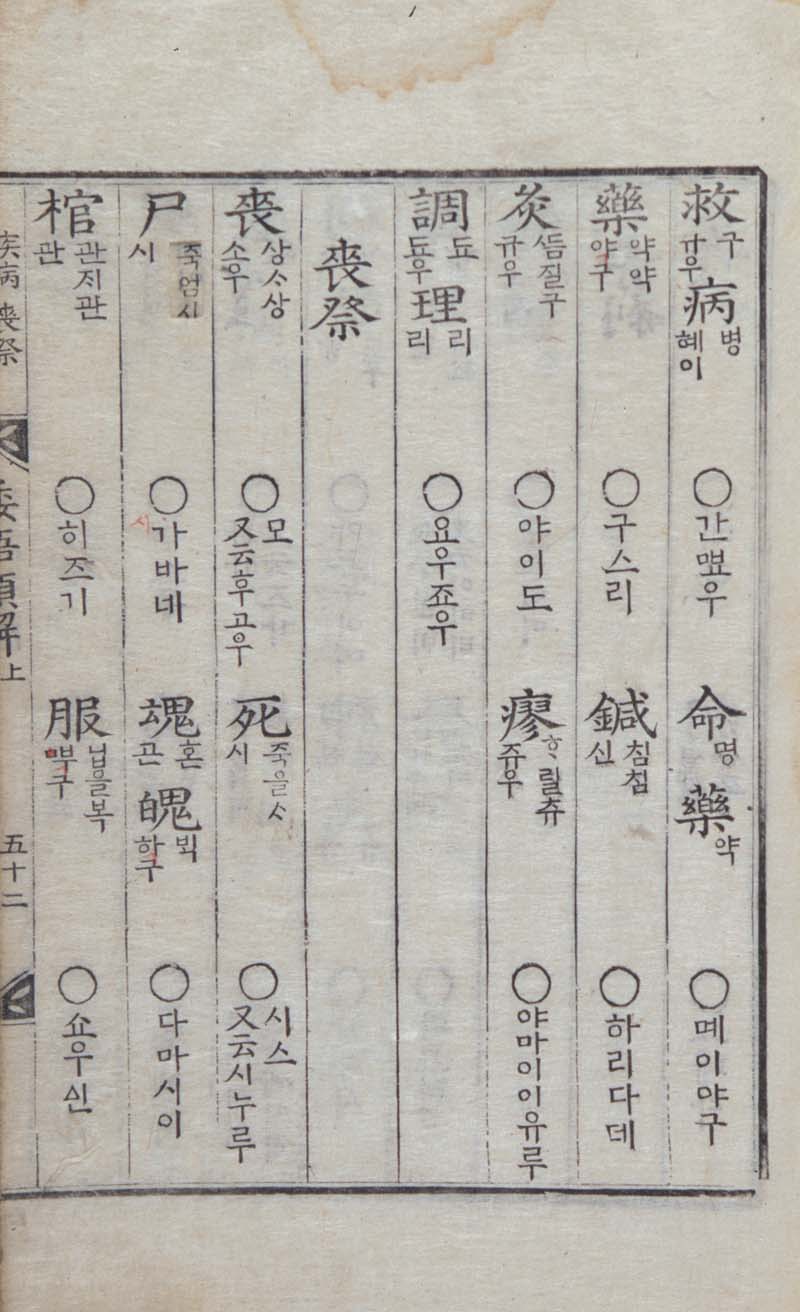 救 구 규우 病 병 혜이 ○간뼈우 命 명 藥 약 ○몌이야구
藥 약약 야구 ○구스리 鍼 침침 신 ○하리다데
灸 뜸질구 규우 ○야이도 瘳 ᄒᆞ릴츄 쥬우 ○야마이이유루
調 됴 됴우 理 리 리 ○요우죠우
喪祭
喪 상ᄉᆞ상 소우 ○모 又云후고우 死 죽을ᄉᆞ 시 ○시스 又云시누루
尸 죽엄시 시 ○가바네 魂 혼 곤 魄 ᄇᆡᆨ 하구 ○다마시이
棺 관지관 관 ○히즈기 服 닙을복 뿌구 ○쇼우신
疾病 喪祭
倭語類解 上
五十二